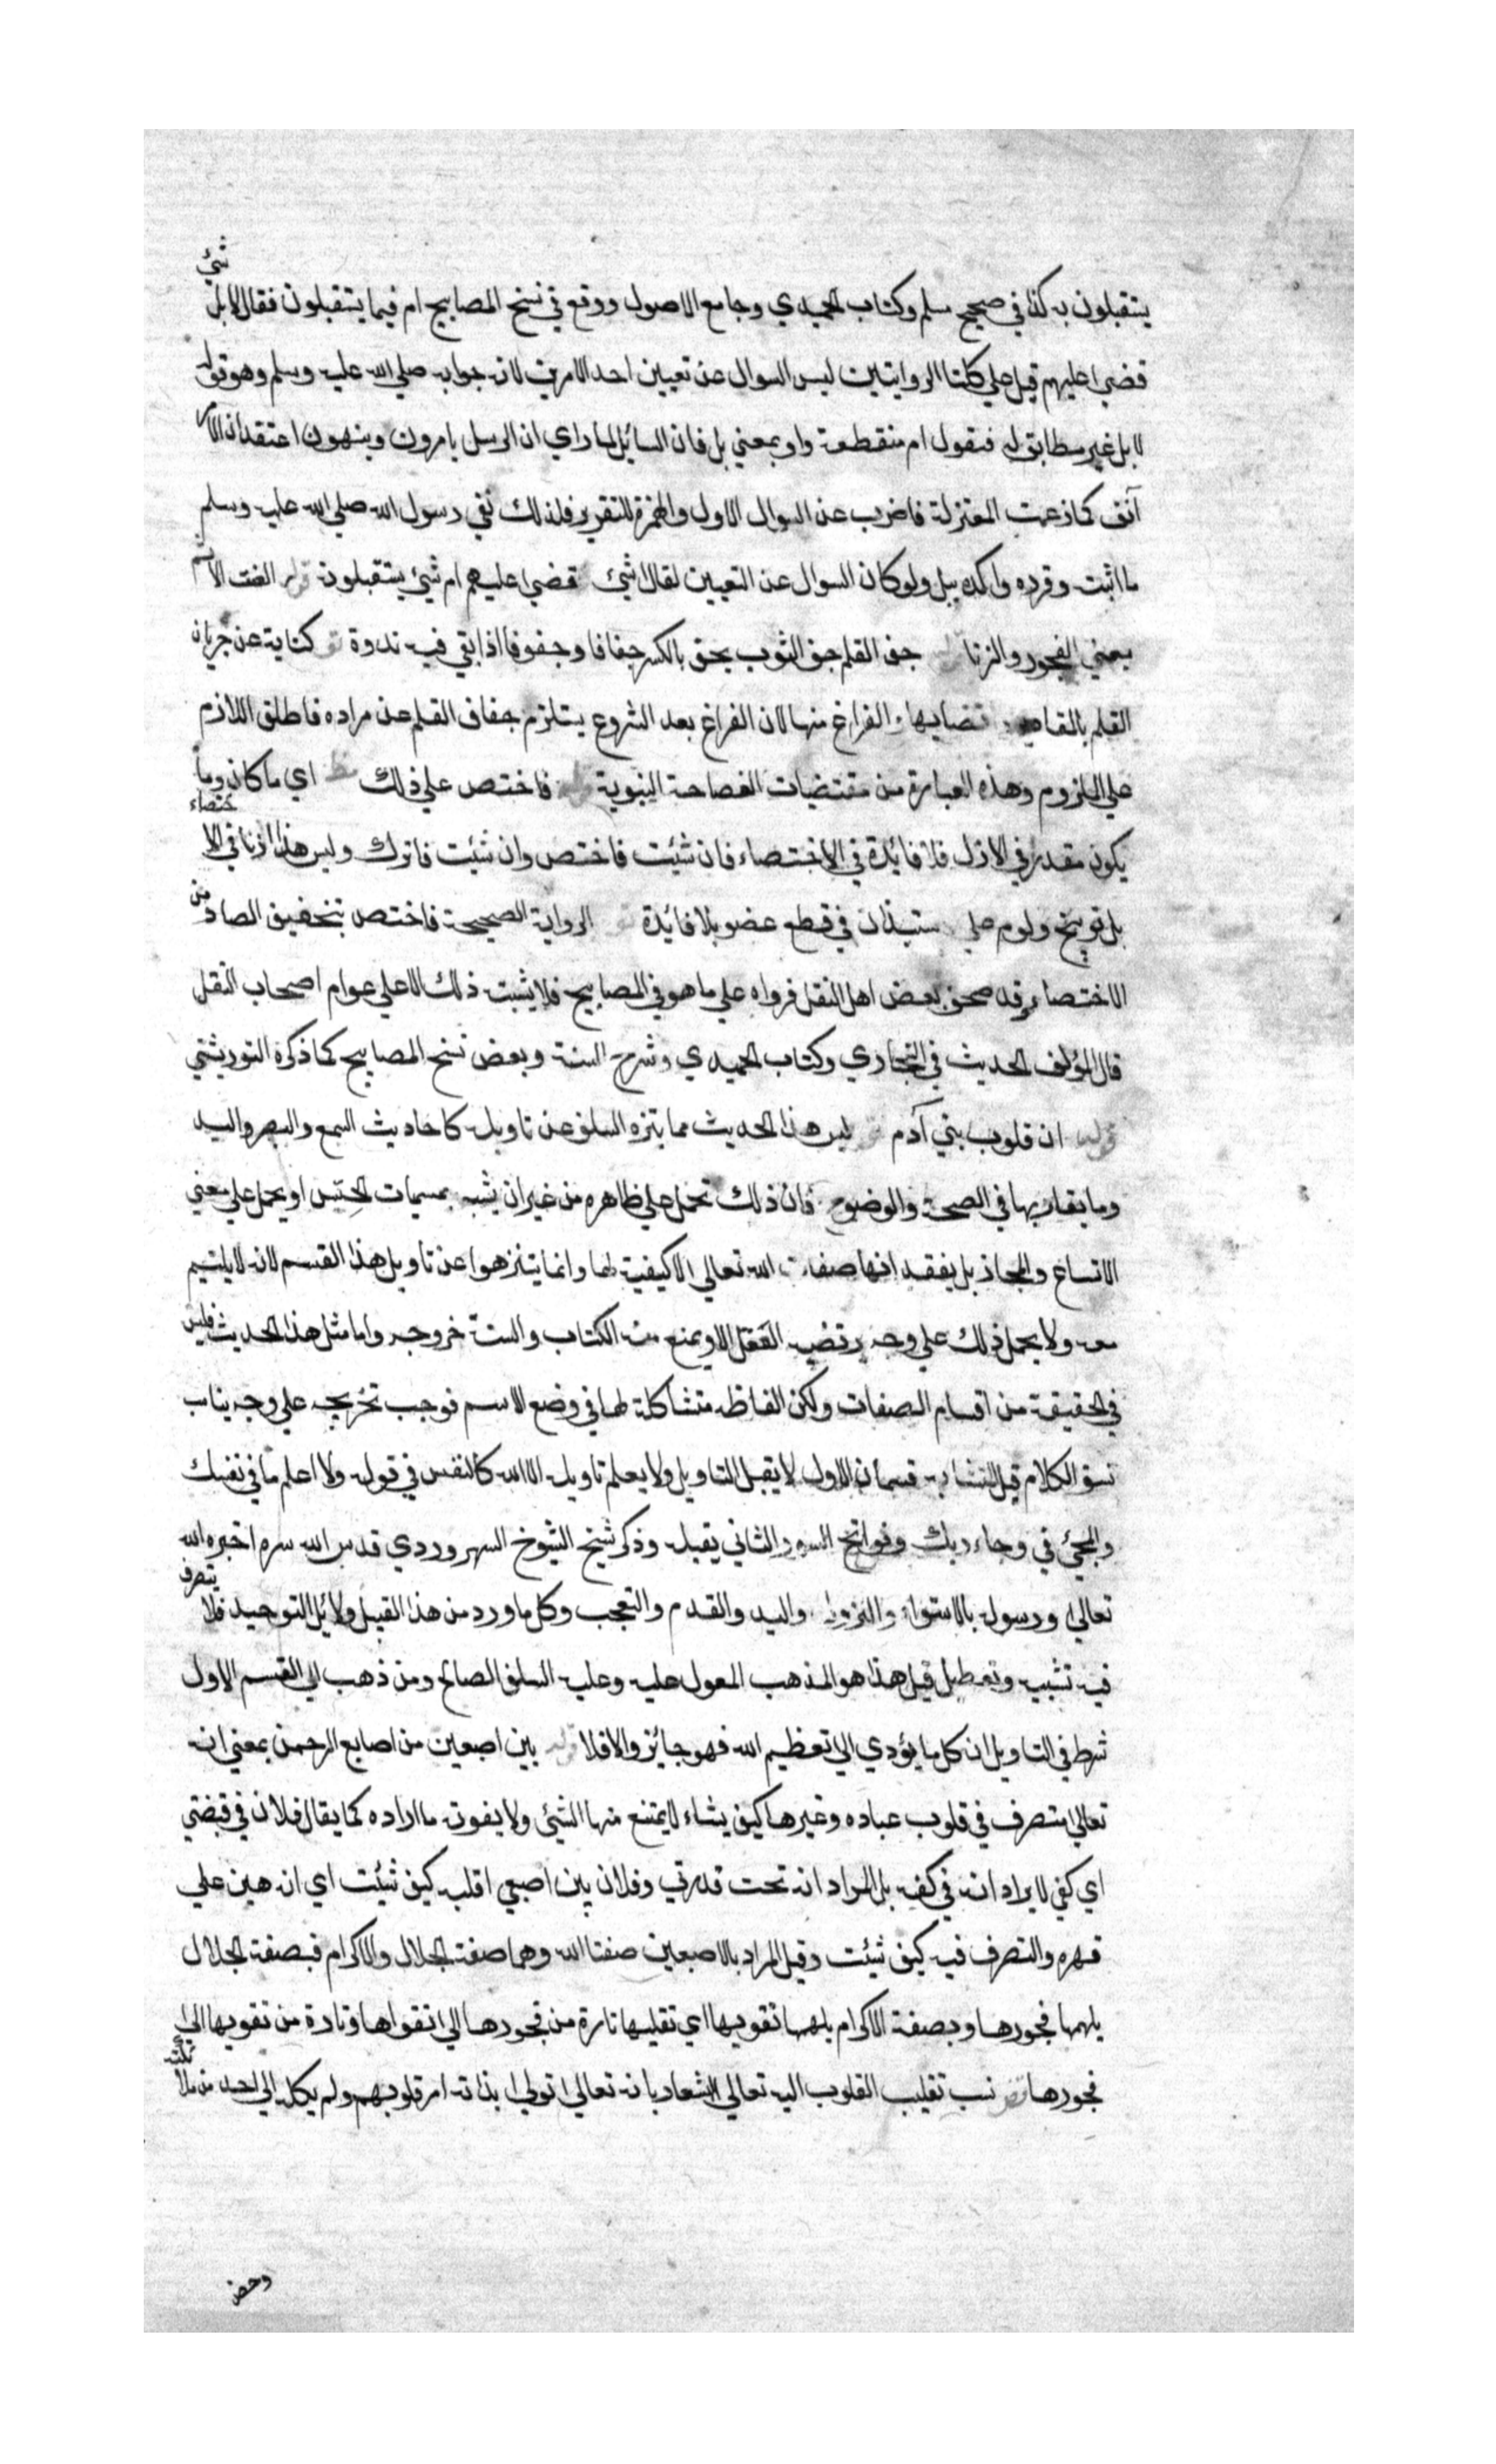 يستقبلون به كذا في صحيح مسلم وكتاب الحميدي وجامع الاصول ووقع في نسخ المصابيح ام فيما يستقبلون فقال لا بل شيئ
قضي عليهم قيل علي كلتا الروايتين ليس السوال عن تعيين احد الامرين لان جوابه صلي الله عليه وسلم وهو قوله
لا بل غير مطابق له فنقول ام منقطعة واو بمعني بل فان السائل لما راي ان الرسل يامرون وينهون اعتقد ان الامر
آنف كما زعمت المعتزلة فاضرب عن السوال الاول والهمزة للتقرير فلذلك نفي رسول الله صلي الله عليه وسلم
ما اثبته وقرره واكده ببل ولو كان السوال عن التعيين لقال اشيئ قضي عليهم ام شيئ يستقبلونه قوله العنت الاثم
يعني الفجور والزنا جف القلم جف الثوب يجف بالكسر جفافا وجفوفا اذا بقي فيه ندوة كناية عن جريان
القلم بالمقادير وامضايها والفراغ منها لان الفراغ بعد الشروع يستلزم جفاف القلم عن مراده فاطلق اللازم
علي الملزوم وهذه العبارة من مقتضيات الفصاحة النبوية قوله فاختص علي ذلك اي ما كان وما
يكون مقدر في الازل فلا فائدة في الاختصاء فان شئت فاختص وان شئت فاترك وليس هذا اذنا في الاختصاء
بل توبيخ ولوم علي استيذان في قطع عضو بلا فائدة الرواية الصحيحة فاختص بتخفيف الصاد من
الاختصاء وقد صحف بعض اهل النقل فرواه علي ما هو في المصابيح فلا يثبت ذلك الا علي عوام اصحاب النقل
قال المؤلف الحديث في البخاري وكتاب الحميدي وشرح السنة وبعض نسخ المصابيح كما ذكره التوربشتي
قوله ان قلوب بني آدم ليس هذا الحديث مما يتنزه السلف عن تاويله كاحاديث السمع والبصر واليد
وما يقاربها في الصحة والوضوح فان ذلك تحمل علي ظاهره من غير ان يشبه بمسميات الجنس او يحمل علي معني
الاتساع والمجاز بل يعتقد انها صفات الله تعالي لا كيفية لها وانما يتنزهوا عن تاويل هذا القسم لانه لا يلتيم
معه ولا يحمل ذلك علي وجه يرتضيه العقل الا ويمنع منه الكتاب والسنة خروجه واما مثل هذا الحديث فليس
في الحقيقة من اقسام الصفات ولكن الفاظه متشاكلة لها في وضع الاسم فوجب تخريجه علي وجه يناسب
نسق الكلام قيل المتشابه قسمان الاول لا يقبل التاويل ولا يعلم تاويله الا الله كالنفس في قوله ولا اعلم ما في نفسك
والمجئ في وجاء ربك وفواتح السور الثاني يقبله وذكر شيخ الشيوخ السهروردي قدس الله سره اخبره الله
تعالي ورسوله بالاستواء والنزول واليد والقدم والتعجب وكل ما ورد من هذا القبيل ولائل التوحيد فلا يتصرف
فيه تشبيه وتعطيل قيل هذا هو المذهب المعول عليه وعليه السلف الصالح ومن ذهب الي القسم الاول
شرط في التاويل ان كل ما يؤدي الي تعظيم الله فهو جائز والا فلا قوله بين اصبعين من اصابع الرحمن بمعني انه
تعالي متصرف في قلوب عباده وغيرها كيف يشاء لا يمتنع منها الشيئ ولا يفوته ما اراده كما يقال فلان في قبضتي
اي كفي لا يراد انه في كفه بل المراد انه تحت قدرتي وفلان بين اصبعي اقلبه كيف شئت اي انه هين علي
قهره والتصرف فيه كيف شئت وقيل المراد بالاصبعين صفتا الله وهما صفة الجلال والاكرام فبصفة الجلال
يلهمها فجورها وبصفة الاكرام يلهمها تقويها اي تقلبها تارة من فجورها الي اتقواها وتارة من تقويها الي
فجورها نسب تقليب القلوب اليه تعالي اشعاد بانه تعالي اتولي بذاته امر قلوبهم ولم يكله الي احد من ملائكته
وخص